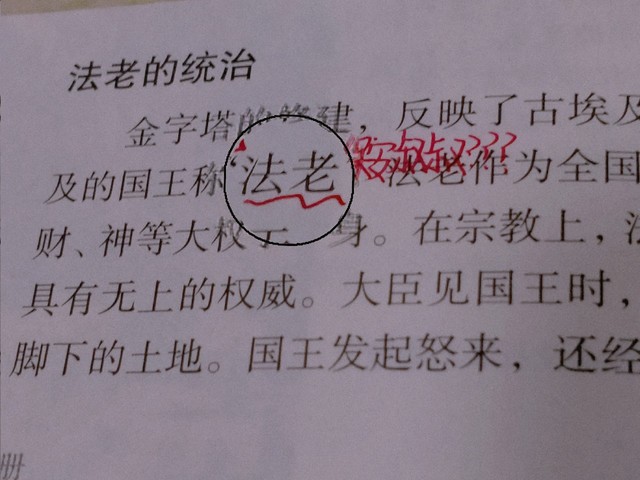 法老的统治
金字塔的修建，反映了古埃及
及的国王称“法老”，法老作为全国
财、神等大权于一身。在宗教上，法
具有无上的权威。大臣见国王时，
脚下的土地。国王发起怒来，还经
册